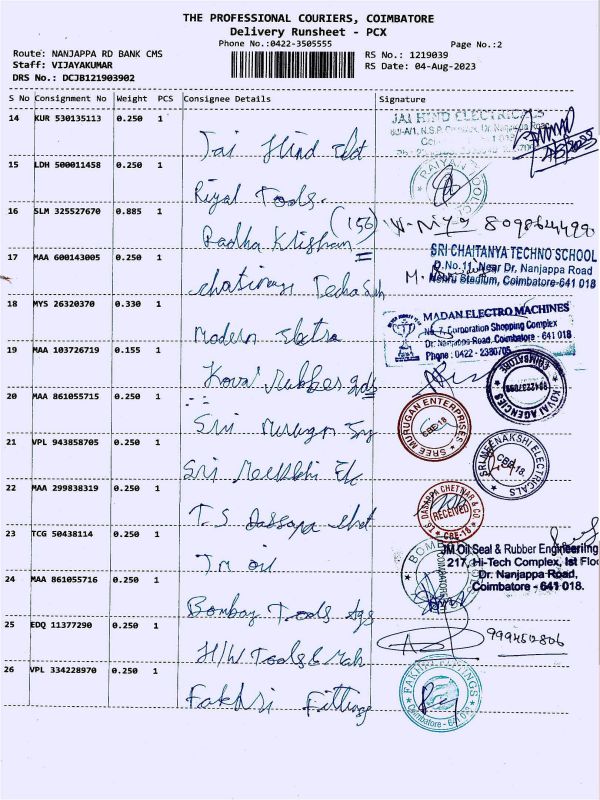 THE PROFESSIONAL COURIERS, COIMBATORE
Delivery Runsheet - PCX
Phone No.:0422-3505555 Page No.:2
Route: NANJAPPA RD BANK CMS RS No.: 1219039
Staff: VIJAYAKUMAR RS Date: 04-Aug-2023
DRS No.: DCJB121903902
S No Consignment No Weight PCS Consignee Details Signature
14 KUR 530135113 0.250 1
Jai Hind
JAI HIND ELECTRICALS
15 LDH 500011458 0.250 1
Riyal Tools.
16 SLM 325527670 0.885 1
Radha Krishnan (156)
17 MAA 600143005 0.250 1
SRI CHAITANYA TECHNO SCHOOL
D.No.11, Near Dr, Nanjappa Road
Nehru Stadium, Coimbatore-641 018
18 MYS 26320370 0.330 1
Modern
MADAN ELECTRO MACHINES
No.7, Corporation Shopping Complex
Dr. Nanjappa Road, Coimbatore - 641 018
Phone : 0422 - 2380705
19 MAA 103726719 0.155 1
Kovai Rubber
KOVAI AGENCIES
COIMBATORE
20 MAA 861055715 0.250 1
Sri Murugan
SREE MURUGAN ENTERPRISES
CBE-18
21 VPL 943858705 0.250 1
Sri
SRI MEENAKSHI ELECTRICALS
CBE-18.
22 MAA 299838319 0.250 1
T.S Dassapa
DASAPPA CHETTIAR & CO.
RECEIVED
CBE-18
23 TCG 50438114 0.250 1
Jm oil
JM Oil Seal & Rubber Engineering
217, Hi-Tech Complex, Ist Floo
Dr. Nanjappa Road,
Coimbatore - 641 018.
24 MAA 861055716 0.250 1
Bombay Tools Ags
25 EDQ 11377290 0.250 1
H/W Tools &
26 VPL 334228970 0.250 1
Fakhri Fittings
FAKHRI FITTINGS